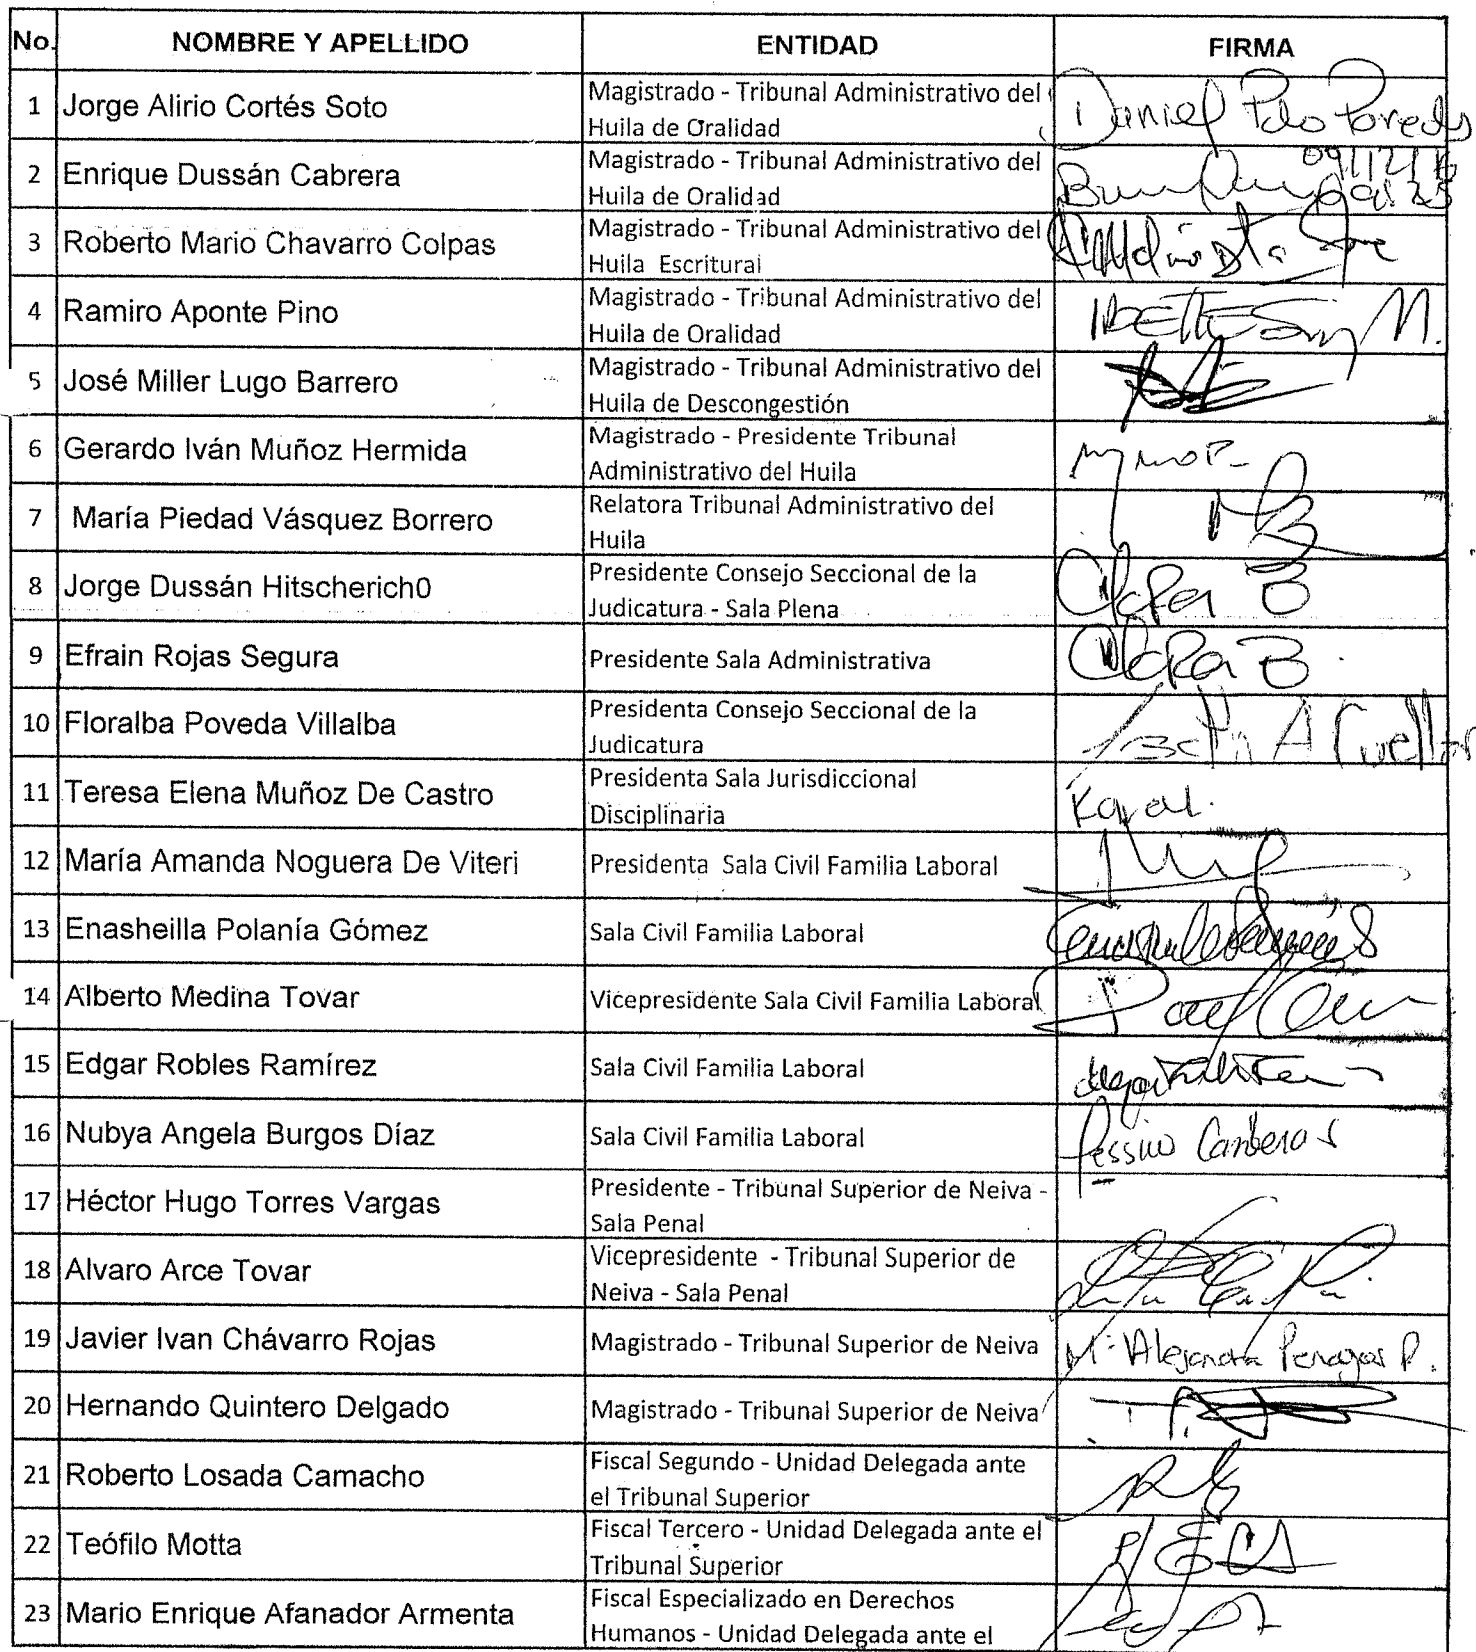 No. NOMBRE Y APELLIDO ENTIDAD FIRMA
1 Jorge Alirio Cortés Soto Magistrado - Tribunal Administrativo del
Huila de Oralidad Daniel Polo Paredes
2 Enrique Dussán Cabrera Magistrado - Tribunal Administrativo del 09/12/16
Huila de Oralidad
3 Roberto Mario Chavarro Colpas Magistrado - Tribunal Administrativo del
Huila Escritural
4 Ramiro Aponte Pino Magistrado - Tribunal Administrativo del
Huila de Oralidad M.
5 José Miller Lugo Barrero Magistrado - Tribunal Administrativo del
Huila de Descongestión
6 Gerardo Iván Muñoz Hermida Magistrado - Presidente Tribunal
Administrativo del Huila
7 María Piedad Vásquez Borrero Relatora Tribunal Administrativo del
Huila
8 Jorge Dussán Hitscherich0 Presidente Consejo Seccional de la
Judicatura - Sala Plena B
9 Efrain Rojas Segura Presidente Sala Administrativa B.
10 Floralba Poveda Villalba Presidenta Consejo Seccional de la
Judicatura A Cuellar
11 Teresa Elena Muñoz De Castro Presidenta Sala Jurisdiccional
Disciplinaria Karol.
12 María Amanda Noguera De Viteri Presidenta Sala Civil Familia Laboral
13 Enasheilla Polanía Gómez Sala Civil Familia Laboral
14 Alberto Medina Tovar Vicepresidente Sala Civil Familia Laboral
15 Edgar Robles Ramírez Sala Civil Familia Laboral
16 Nubya Angela Burgos Díaz Sala Civil Familia Laboral
17 Héctor Hugo Torres Vargas Presidente - Tribunal Superior de Neiva -
Sala Penal
18 Alvaro Arce Tovar Vicepresidente - Tribunal Superior de
Neiva - Sala Penal
19 Javier Ivan Chávarro Rojas Magistrado - Tribunal Superior de Neiva Mª Alejandra Penagos P.
20 Hernando Quintero Delgado Magistrado - Tribunal Superior de Neiva
21 Roberto Losada Camacho Fiscal Segundo - Unidad Delegada ante
el Tribunal Superior
22 Teófilo Motta Fiscal Tercero - Unidad Delegada ante el
Tribunal Superior
23 Mario Enrique Afanador Armenta Fiscal Especializado en Derechos
Humanos - Unidad Delegada ante el